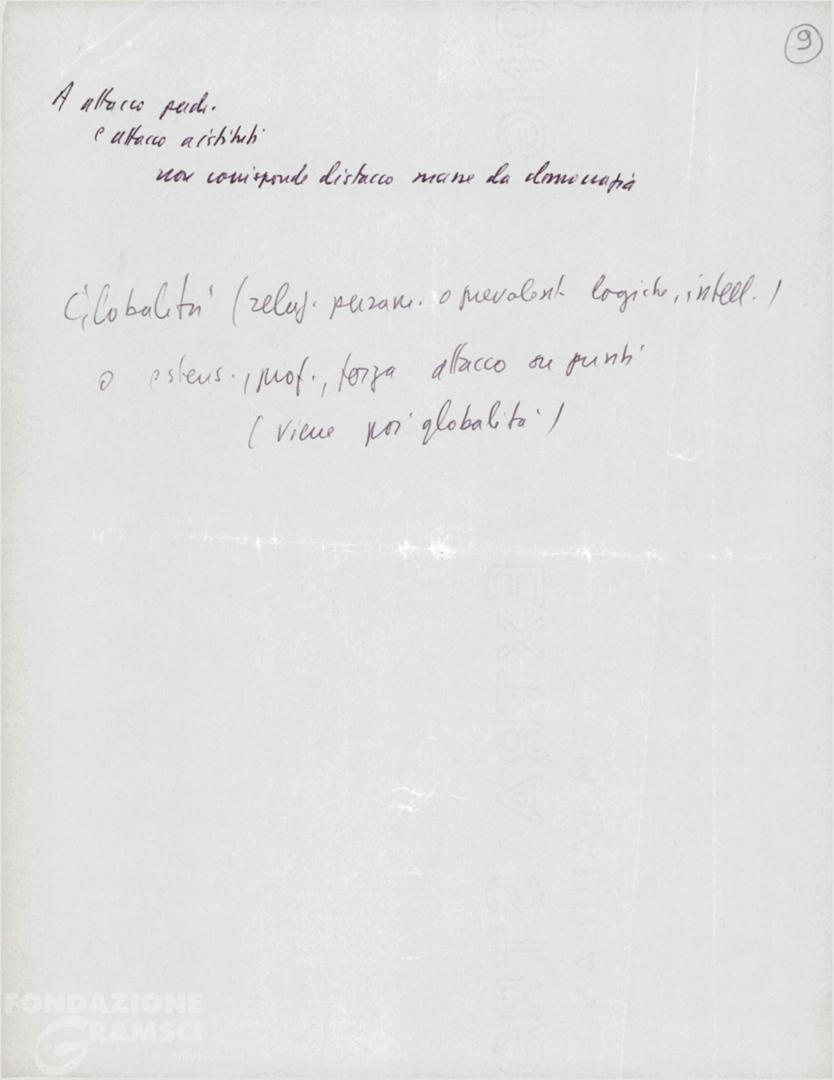 9
A attacco
e attacco a istituti
non corrisponde distacco masse da democrazia
Globalità (relaz. o prevalent. logiche, intell.)
o estens., prof., forza attacco su punti
(viene poi globalità)
EXTRA
FONDAZIONE
GRAMSCI
onlus